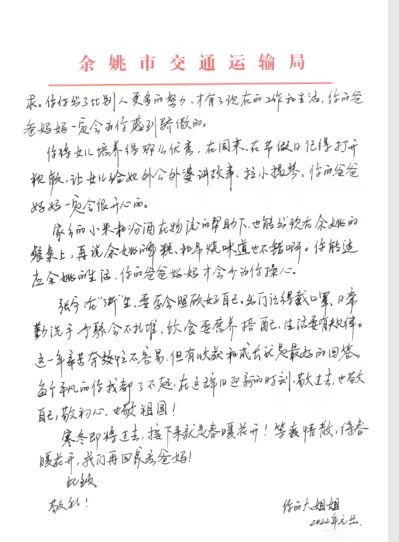 余姚市交通运输局
求。你付出了比别人更多的努力,才有了现在的工作和生活,你的爸
爸妈妈一定会为你感到骄傲的。
你将女儿培养得那么优秀,在周末、在节假日记得打开
视频,让女儿给她外公外婆讲故事,拉小提琴,你的爸爸
妈妈一定会很开心的。
家乡的小米和汾酒在物流的帮助下,也能出现在余姚的
餐桌上,再说余姚的 和年 味道也不错啊。你能适
应余姚的生活,你的爸爸妈妈才会少为你操心。
张 在“浙”里,要学会照顾好自己,出门记得戴口罩,日常
勤洗手, 不扎堆,饮食要营养搭配,生活要有规律。
这一年辛苦奔波 不容易,但有收获和成长就是最好的回答。
每个平凡的你我都了不起,在这辞旧迎新的时刻,敬过去,也敬
自己,敬初心,也敬祖国!
寒冬即将过去,接下来就是春暖花开!等疫情散,待春
暖花开,我们再回家看爸妈!
此致
敬礼!
你的大姐姐
2022年元旦